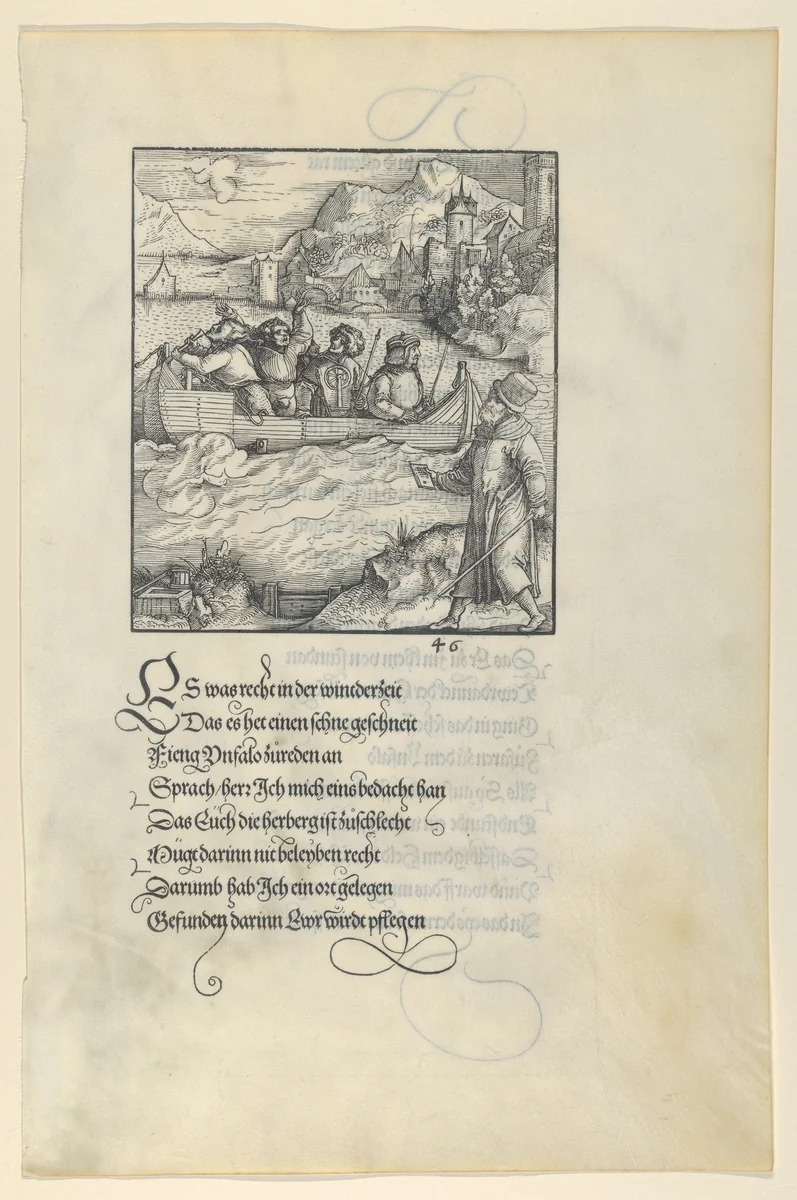 46
ES was recht in der winterzeit
Das es het einen schne geschneit
Fieng Vnfalo zůreden an
Sprach/herr Ich mich eins bedacht han
Das Eüch die herberg ist zůschlecht
Mügt darinn nit beleyben recht
Darumb hab Ich ein ort gelegen
Gefunden darinn Ewr wirdt pflegen